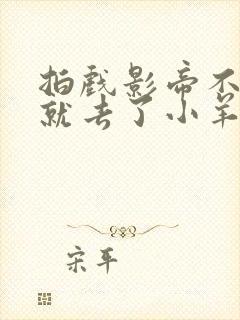 拍戏影帝不
就去了小羊
宋平